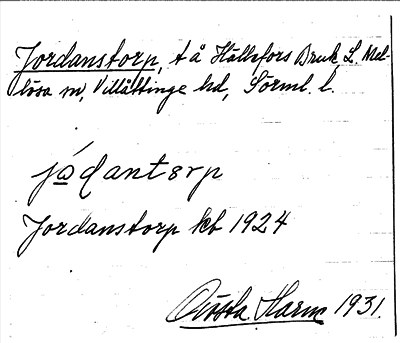 Jordanstorp, t å Hällefors Bruk, L. Mel-
lösa sn, Villåttinge hd, Sörml. l.
jo̱dantərp
Jordanstorp kb 1924
Gösta Harm 1931.